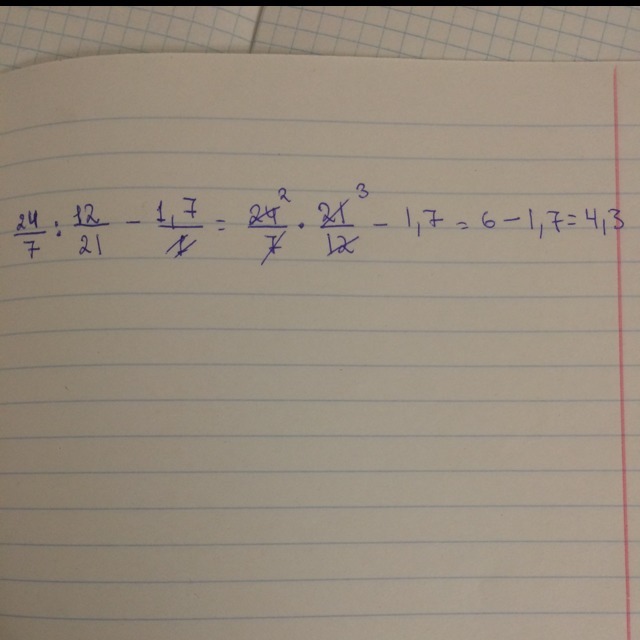 24/7 : 12/21 - 1,7/1 = 24²/7 · 21³/12 - 1,7 = 6 - 1,7 = 4,3